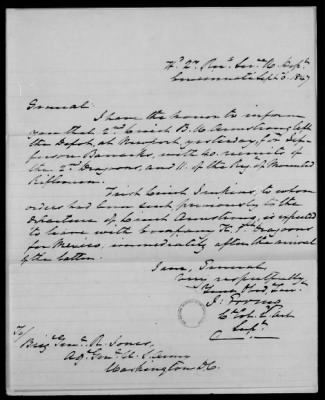 Hd. Qrs. Recg. Service, W. Dept.
Cincinnati Sept. 3. 1847
General:
I have the honor to inform
you that 2nd Lieut B. H. Armstrong left
the Depot, at Newport, yesterday, for Jef-
ferson Barracks, with 40 recruits of
the 2nd Dragoons, and 11 of the Regt of Mounted
Riflemen.
First Lieut Jenkins, to whom
orders had been sent previously to the
departure of Lieut Armstrong, is expected
to leave with Company K. 1st Dragoons
for Mexico, immediately after the arrival
of the latter.
I am, General,
very respectfully
Your Obdt. Servt.
J. Erving
Lt Col 2d Art
Supt
To
Brig Genl. R. Jones,
Adj. Genl. U. S. Army
Washington